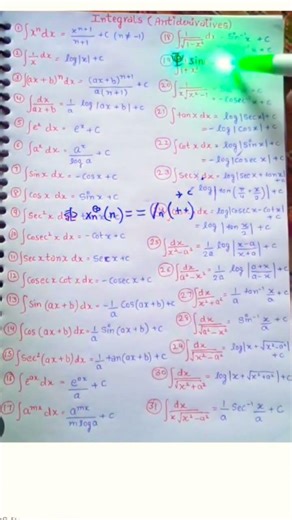 Integrals (Antiderivatives)
① ∫xⁿ dx = xⁿ⁺¹/n+1 + C (n ≠ -1)
② ∫1/x dx = log|x| + C
③ ∫(ax+b)ⁿ dx = (ax+b)ⁿ⁺¹/a(n+1) + C
④ ∫dx/ax+b = 1/a log|ax+b| + C
⑤ ∫eˣ dx = eˣ + C
⑥ ∫aˣ dx = aˣ/log a + C
⑦ ∫sinx dx = -cosx + C
⑧ ∫cosx dx = sinx + C
⑨ ∫sec²x dx =
⑩ ∫cosec²x dx = -cotx + C
⑪ ∫secx tanx dx = secx + C
⑫ ∫cosecx cotx dx = -cosecx + C
⑬ ∫sin(ax+b) dx = -1/a cos(ax+b) + C
⑭ ∫cos(ax+b) dx = 1/a sin(ax+b) + C
⑮ ∫sec²(ax+b) dx = 1/a tan(ax+b) + C
⑯ ∫eᵃˣ dx = eᵃˣ/a + C
⑰ ∫aᵐˣ dx = aᵐˣ/m log a + C
⑱ ∫1/√1-x² dx = sin⁻¹x + C
sin
1+x²
⑳ ∫1/x√x²-1 dx
= -cosec⁻¹x + C
㉑ ∫tanx dx = log|secx| + C
= -log|cosx| + C
㉒ ∫cotx dx = log|sinx| + C
= -log|cosecx| + C
㉓ ∫secx dx = log|secx + tanx|
+ C log|tan(π/4 + x/2)| + C
dx = log|cosecx - cotx| + C
= log|tan x/2| + C
∫dx/x²-a² = 1/2a log|x-a/x+a| + C
㉖ ∫dx/a²-x² = 1/2a log|a+x/a-x| + C
㉗ ∫dx/x²+a² = 1/a tan⁻¹ x/a + C
∫dx/√a²-x² = sin⁻¹ x/a + C
㉙ ∫dx/√x²-a² = log|x+√x²-a²| + C
㉚ ∫dx/√x²+a² = log|x+√x²+a²| + C
㉛ ∫dx/x√x²-a² = 1/a sec⁻¹ x/a + C